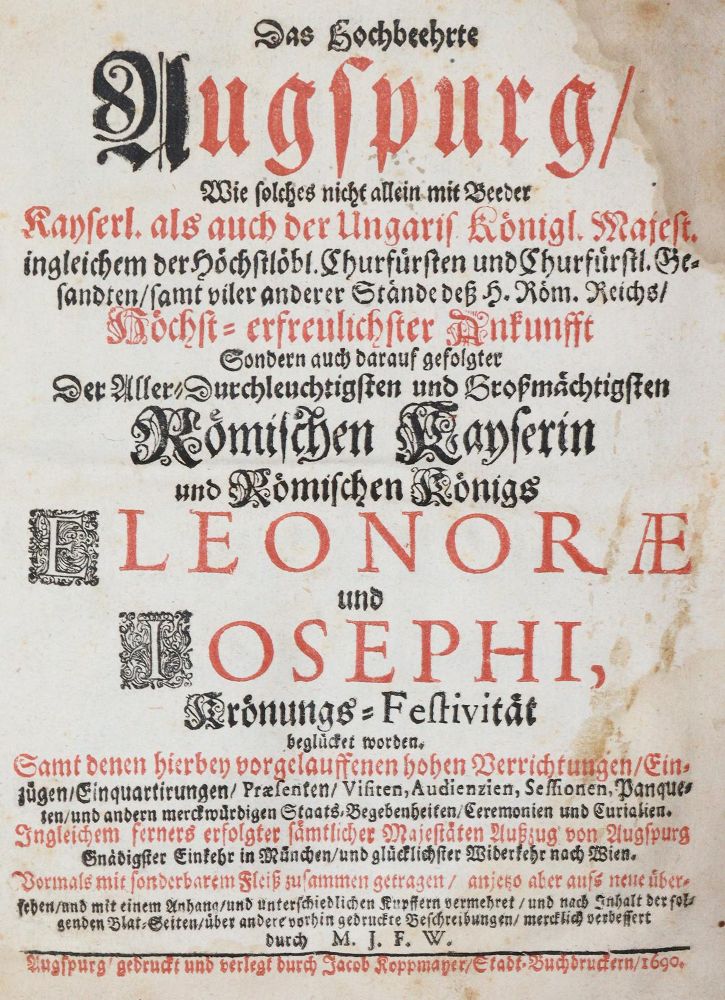 Das Hochbeehrte
Augſpurg/
Wie ſolches nicht allein mit Beeder
Kayſerl. als auch der Ungariſ. Königl. Majeſt.
ingleichem der Höchſtlöbl. Churfürſten und Churfürſtl. Ge-
ſandten/ſamt viler anderer Stände deß H. Röm. Reichs/
Höchſt-erfreulichſter Ankunfft
Sondern auch darauf gefolgter
Der Aller-Durchleuchtigſten und Großmächtigſten
Römiſchen Kayſerin
und Römiſchen Königs
ELEONORÆ
und
IOSEPHI,
Krönungs-Feſtivität
beglücket worden.
Samt denen hierbey vorgelauffenen hohen Verrichtungen/Ein-
zügen/Einquartirungen/Præſenten/Viſiten, Audienzien, Seſſionen, Panque-
ten/und andern merckwürdigen Staats-Begebenheiten/Ceremonien und Curialien.
Ingleichem ferners erfolgter ſämtlicher Majeſtäten Außzug von Augſpurg
Gnädigſter Einkehr in München/und glücklichſter Widerkehr nach Wien.
Vormals mit ſonderbarem Fleiß zuſammen getragen/ anjetzo aber aufs neue über-
ſehen/und mit einem Anhang/und unterſchiedlichen Kupffern vermehret/und nach Inhalt der fol-
genden Blat-Seiten/über andere vorhin gedruckte Beſchreibungen/ mercklich verbeſſert
durch M. J. F. W.
Augſpurg/ gedruckt und verlegt durch Jacob Koppmayer/Stadt-Buchdruckern/1690.